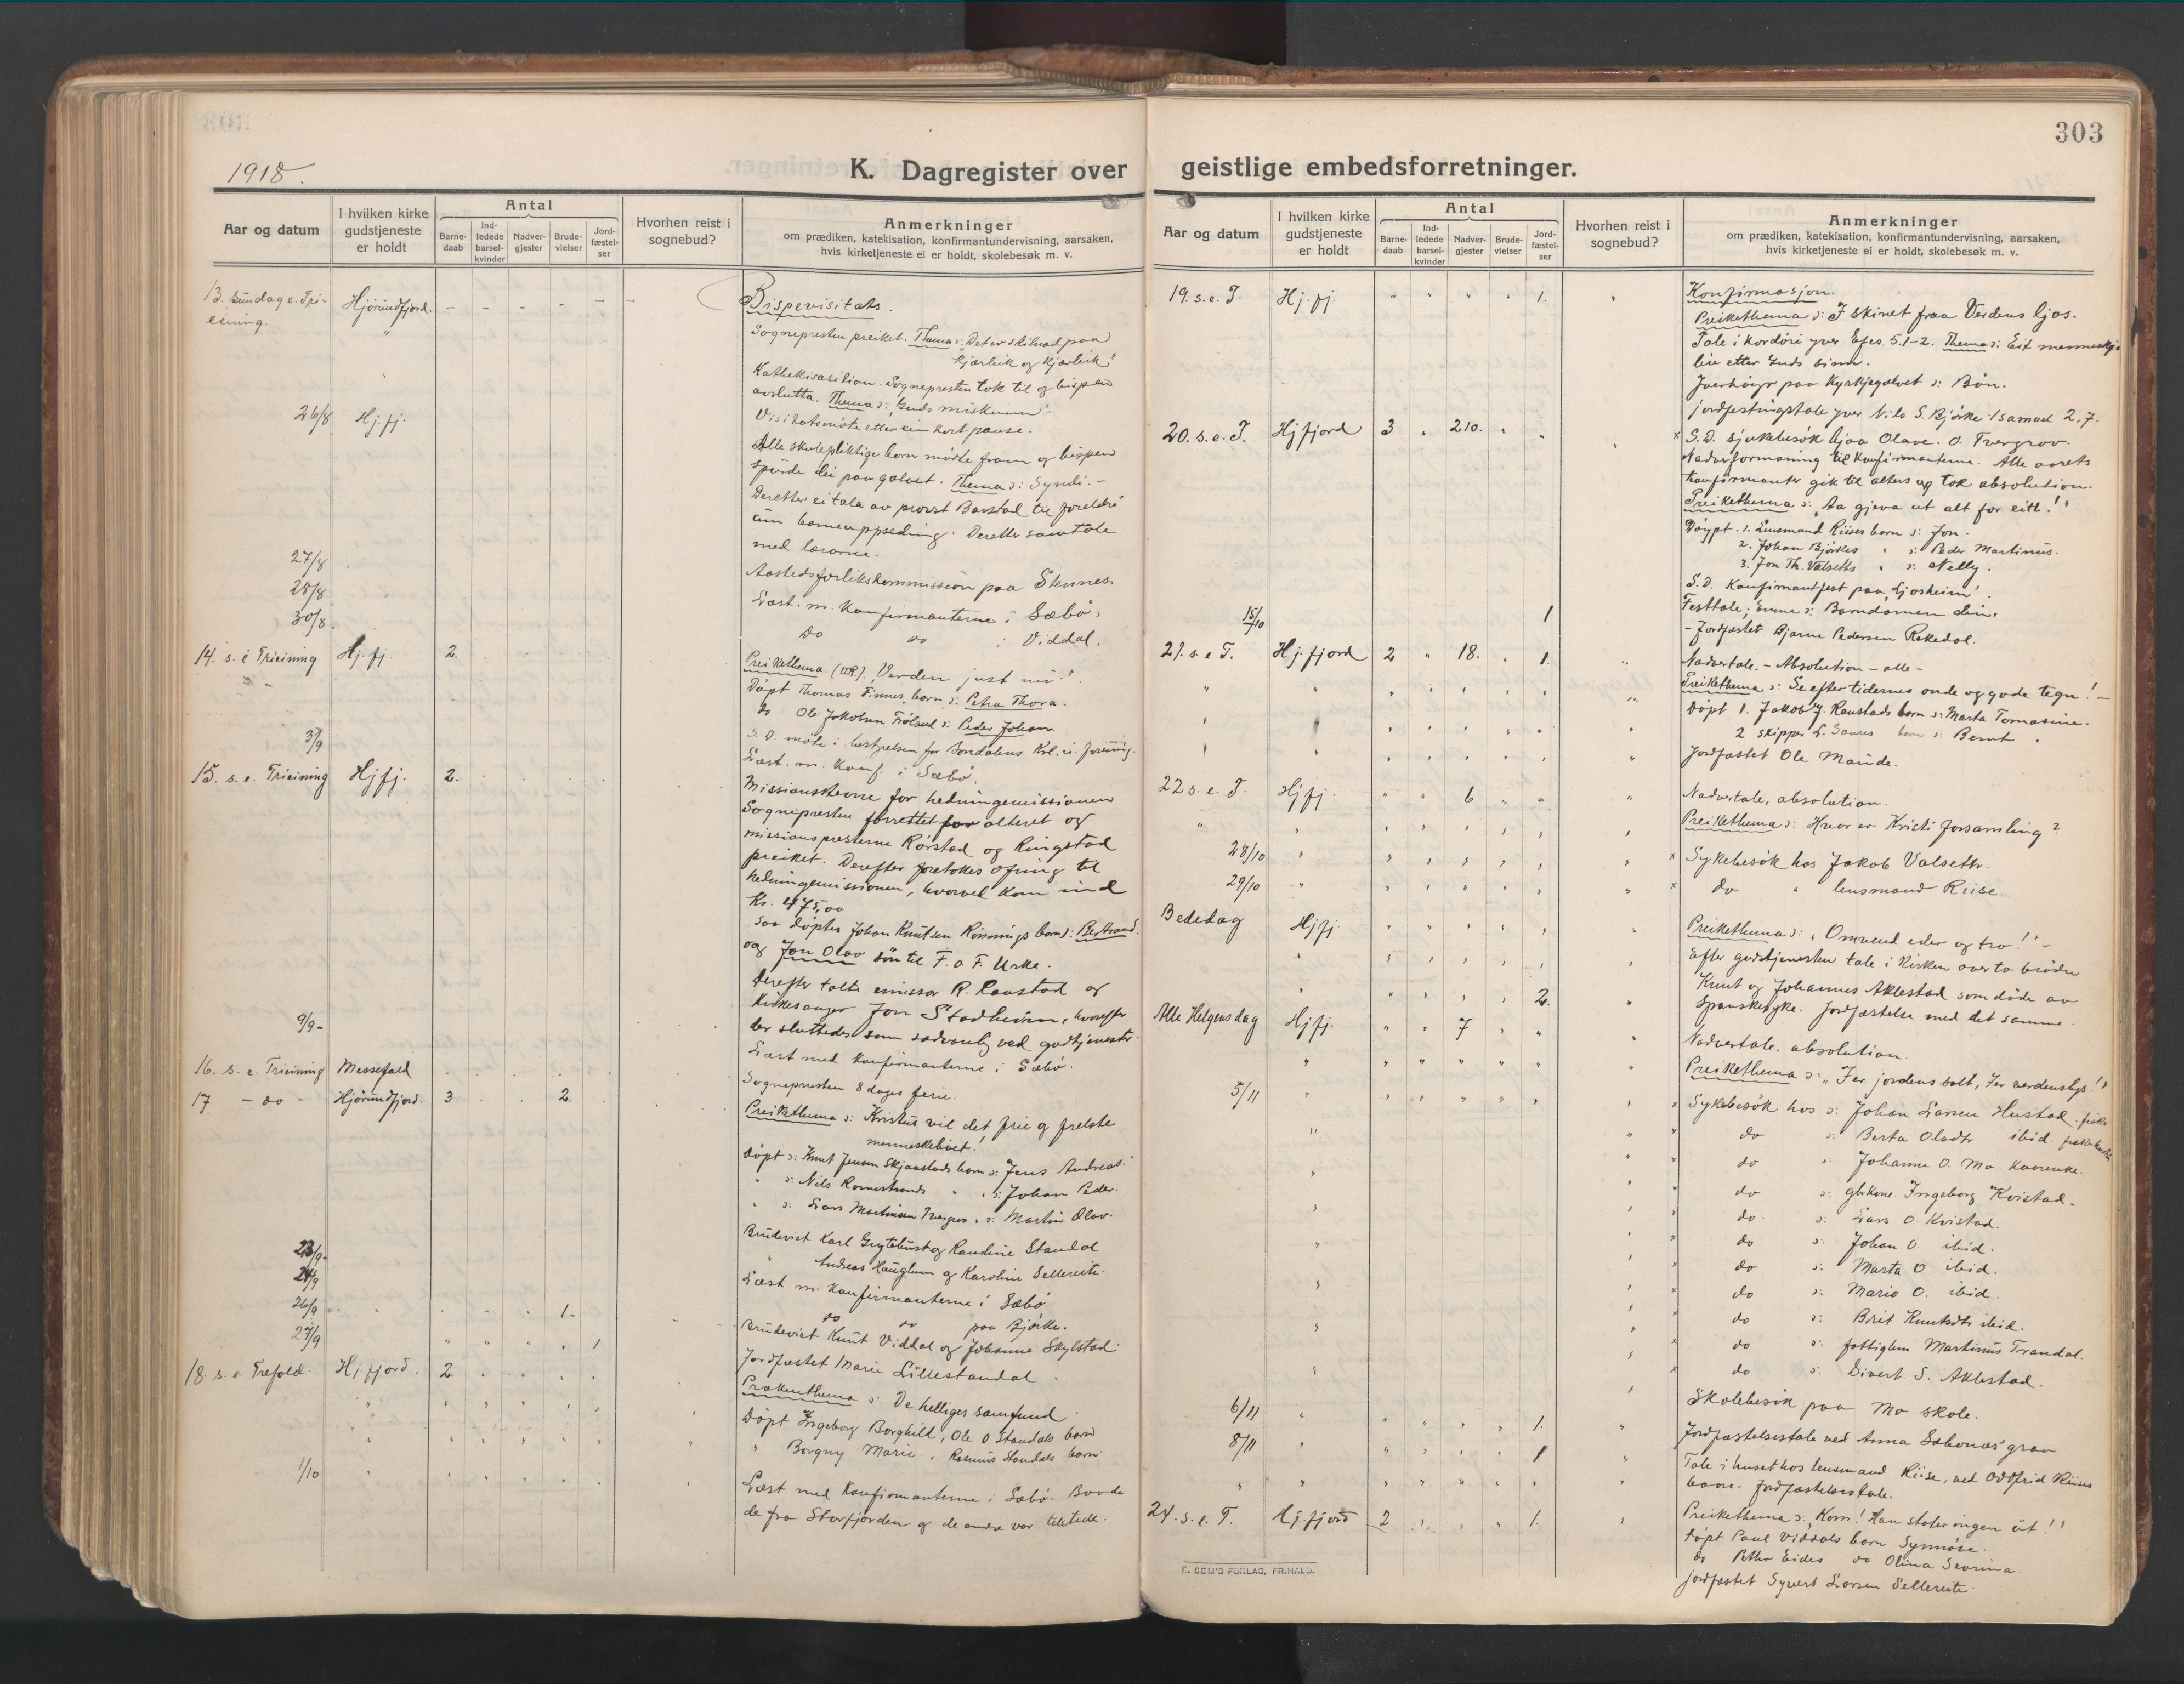 303
1918.
K. Dagregister over geistlige embedsforretninger.
Aar og datum
I hvilken kirke gudstjeneste er holdt
Antal
Barne-daab
Ind-ledede barsel-kvinder
Nadver-gjester
Brude-vielser
Jord-fæstel-ser
Hvorhen reist i sognebud?
Anmerkninger
om prædiken, katekisation, konfirmantundervisning, aarsaken,
hvis kirketjeneste ei er holdt, skolebesøk m. v.
13. sundag e. Tri-
eining.
Hjørundfjord. - - - - -
Bispevisitats.
Sognepresten preiket. Thema: Det er skilnad paa
Kjærleik og Kjærleik"
Sognepresten tok til og bispen
avslutta. Thema: "Guds miskunn".
26/8 Hj.fj.
Visitatsmøte etter ein kort pause.
Alle skulepliktige born møtte fram og bispen
spurde dei paa golvet. Thema: Syndi. -
Deretter ei tala av provst Barstad til foreldre
um barneuppseding. Deretter samtale
med lærarne.
27/8
Aastedsforlikskommission paa Stennes
28/8
Læst m. Konfirmanterne i Sæbø.
30/8.
Do do i Viddal.
14. s. e Trieining Hj.fj. 2.
Preikethema (IIR.) "Verden just nu!"
Døpt Thomas Finnes born: Petra Thora.
do Ole Jakobsen : Peder Johan
S. D. møte i bestyrelsen for Bondalens
3/9
Læst. m. Konf. i Sæbø.
15. s. e. Trieining Hjfj. 2.
Missionsstevne for hedningemissionen
Sognepresten forrettet for alteret og
missionspresterne Rørstad og Ringstad
preiket. Derefter foretokes ofring til
hedningemissionen, hvorved kom ind
Kr. 475,00
Saa døptes Johan Knutsen Rønnings born: Bertrand.
og Jon Olav søn til F. o F. Urke.
Derefter talte emissær R. Raustad og
kirkesanger Jon Stadheim, hvorefter
der sluttedes som sedvanlig ved gudstjenester.
9/9 -
Læst med Konfirmanterne i Sæbø.
16. s. e. Trieining Messefald
Sognepresten 8 dages ferie.
17 - do - Hjørundfjord. 3 2.
Preikethema: Kristus vil det frie og frelste
menneskelivet!
Døpt: Knut Jensen Skjaastads born: Jens Andreas.
" : Nils Romestrands " : Johan Peder.
" : Lars Martinsen Tvergrov " : Martin Olav.
Brudeviet Karl Grytebust og Randine Standal
" Andreas Hauglum og Karoline Sellereite.
23/9-
Læst m. Konfirmanterne i Sæbø
24/9
do do paa Bjørke.
26/9 1.
Brudeviet Knut Viddal og Johanne Skylstad
27/9 1
Jordfæstet Marie Lillestandal.
18. s. e Trefold. Hj.fjord. 2.
Prækenthema: De helliges samfund.
Døpt Ingeborg Borghild, Ole O Standals born
" Borgny Marie, Rasmus Standals born.
1/10
Læst med Konfirmanterne i Sæbø. Baade
de fra Storfjorden og de andre var tilstede.
Aar og datum
I hvilken kirke gudstjeneste er holdt
Antal
Barne-daab
Ind-ledede barsel-kvinder
Nadver-gjester
Brude-vielser
Jord-fæstel-ser
Hvorhen reist i sognebud?
Anmerkninger
om prædiken, katekisation, konfirmantundervisning, aarsaken,
hvis kirketjeneste ei er holdt, skolebesøk m. v.
19. s. e. T. Hj.fj. " " " " 1. "
Konfirmasjon.
Preikethema: I skinet fraa Verdens ljos.
Tale i kordøri yver Efes. 5.1-2. Thema: Eit menneskje-
liv etter Guds sinn.
paa Kyrkjegolvet : Bøn.
Jordfestingstale yver Nils S. Bjørke. 1 Samuel 2,7.
20. s. e. T. Hjfjord 3 " 210. " "
x S.D. sjukebesøk hjaa Olave. O. Tvergrov.
Nadverformaning til Konfirmanterne. Alle aarets
Konfirmanter gik til alters og tok absolution.
Preikethema: "Aa gjeva ut alt for eitt!"
Døypt. 1. Lensmand Riises born: Jon.
2. Johan Bjørkes " : Peder Martinus.
3. Jon Th. Valseths " : Nelly.
S.D. Konfirmantfest paa "Ljosheim".
Festtale; Emne: Barndomen din.
15/10 1
- Jordfæstet Bjarne Pedersen Rekedal.
21. s. e T. Hj.fjord 2 " 18. " 1. "
Nadvertale. - Absolution - alle -
Preikethema: Se efter tidernes onde og gode tegn! -
Døpt 1. Jakob J. Raustads born: Marta Tomasine.
2 skipper L. born: Bernt.
Jordfæstet Ole Maude.
22 s. e. T. Hjfj. " " 6 " " "
Nadvertale, absolution.
Preikethema: Hvor er Kristi forsamling?
28/10
x Sykebesøk hos Jakob Valseth.
29/10
x do " lensmand Riise
Bededag Hjfj.
Preikethema: "Omvend eder og tro!" -
Efter gudstjenesten tale i Kirken over to brødre
Knut og Johannes Aklestad som døde av
2.
spanskesyke. Jordfæstelse med det samme.
Alle Helgensdag Hjfj. " " 7 " " "
Nadvertale. absolution.
Preikethema: "I er jordens salt, I er verdens lys!"
5/11
x Sykebesøk hos: Johan Larsen Hustad. fisker
x do : Berta Olsdtr ibid.
do : Johanne O. Mo.
do : gbrkone. Ingeborg Kvistad.
do : Lars O. Kvistad.
do : Johan O. ibid.
do : Marta O ibid.
do : Marie O. ibid.
do : Brit Knutsdtr ibid.
do : fattiglem Martinus Trandal.
do : Sivert. S. Aklestad.
6/11 1.
Skolebesøk paa Mo skole.
Jordfæstelsestale ved Anna Sæbønes' grav
8/11 1
Tale i huset hos lensmand Riise, ved Oddfrid Riises
baare. Jordfæstelsestale.
24. s. e. T. Hj.fjord 2 " " " 1. "
Preikethema: "Kom! Han støter ingen ut!"
Døpt Paul Viddals born Synnøve.
do Petter Eides do Olina Severina.
Jordfæstet Syvert Larsen Sellereite.
E. SEM'S FORLAG, FR.HALD.